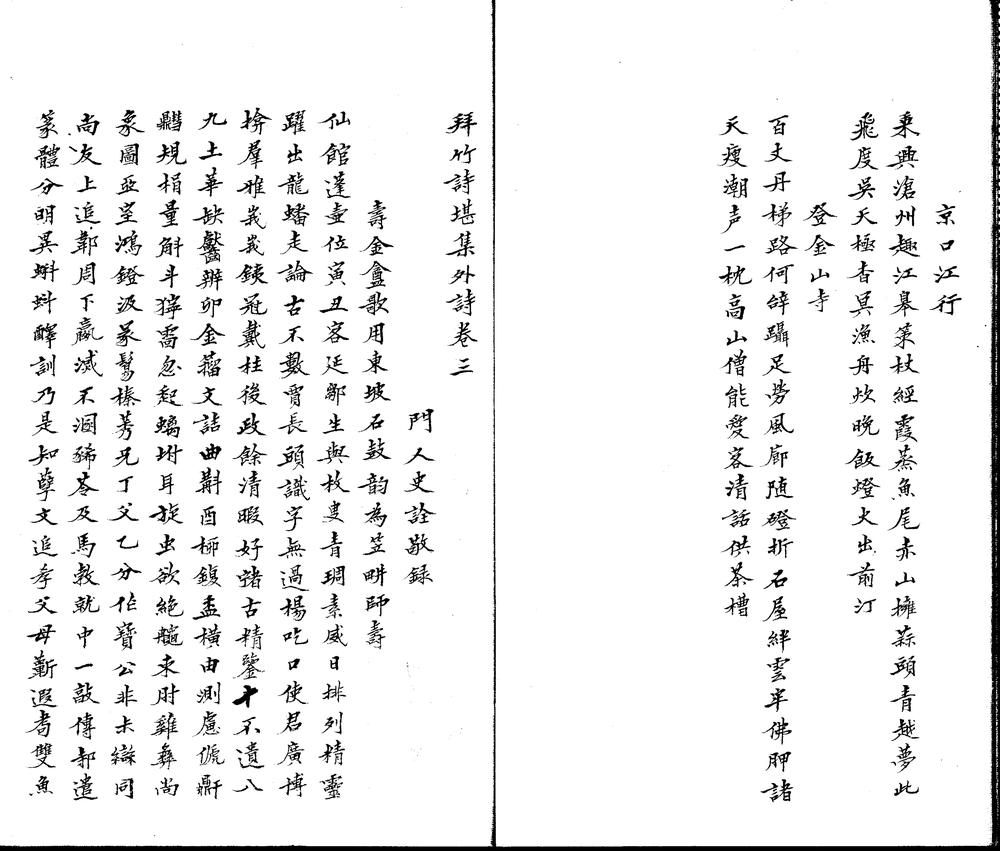 京口江行
乘興滄州趣江皋策杖經霞蒸魚尾赤山擁蒜頭青越夢此
飛度吳天極杳冥漁舟炊晚飯燈火出前汀
登金山寺
百丈丹梯路何辭躡足勞風廊随磴折石屋絆雲牢佛胛諸
天瘦潮声一枕高山僧能愛客清話供茶槽
拜竹詩堪集外詩卷三
門人史詮敬録
壽金盦歌用東坡石鼓韵為笠畊師壽
仙館蓬壺位寅丑客延鄒生與枚叟青琱素威日排列精靈
躍出龍蟠走論古不數賈長頭識字無過楊吃口使君廣博
揜羣雅峩峩鐵冠戴柱後政餘清暇好蓄古精鑒十不遺八
九土華缺齾辨卯金籀文詰曲斠酉桺鍑盂橫由測慮俿鼏
鼎規楬量斛斗獰雷忽起螭坿耳旋虫欲絕艫束肘雞彝尚
象圖亞室鴻鐙汲篆鬄榛莠兄丁父乙分作寶公非未辯同
尚友上追鄣周下嬴滅不溷豨苓及馬敄就中一敲傳郝遣
篆體分明異蝌蚪醳訓乃是知孽文追孝父母蘄遐耇雙魚